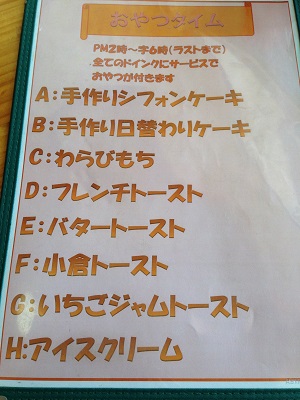 おやつタイム
PM2時～字6時(ラストまで)
全てのドインクにサービスで
おやつが付きます
A:手作りシフォンケーキ
B:手作り日替わりケーキ
C:わらびもち
D:フレンチトースト
E:バタートースト
F:小倉トースト
G:いちごジャムトースト
H:アイスクリーム